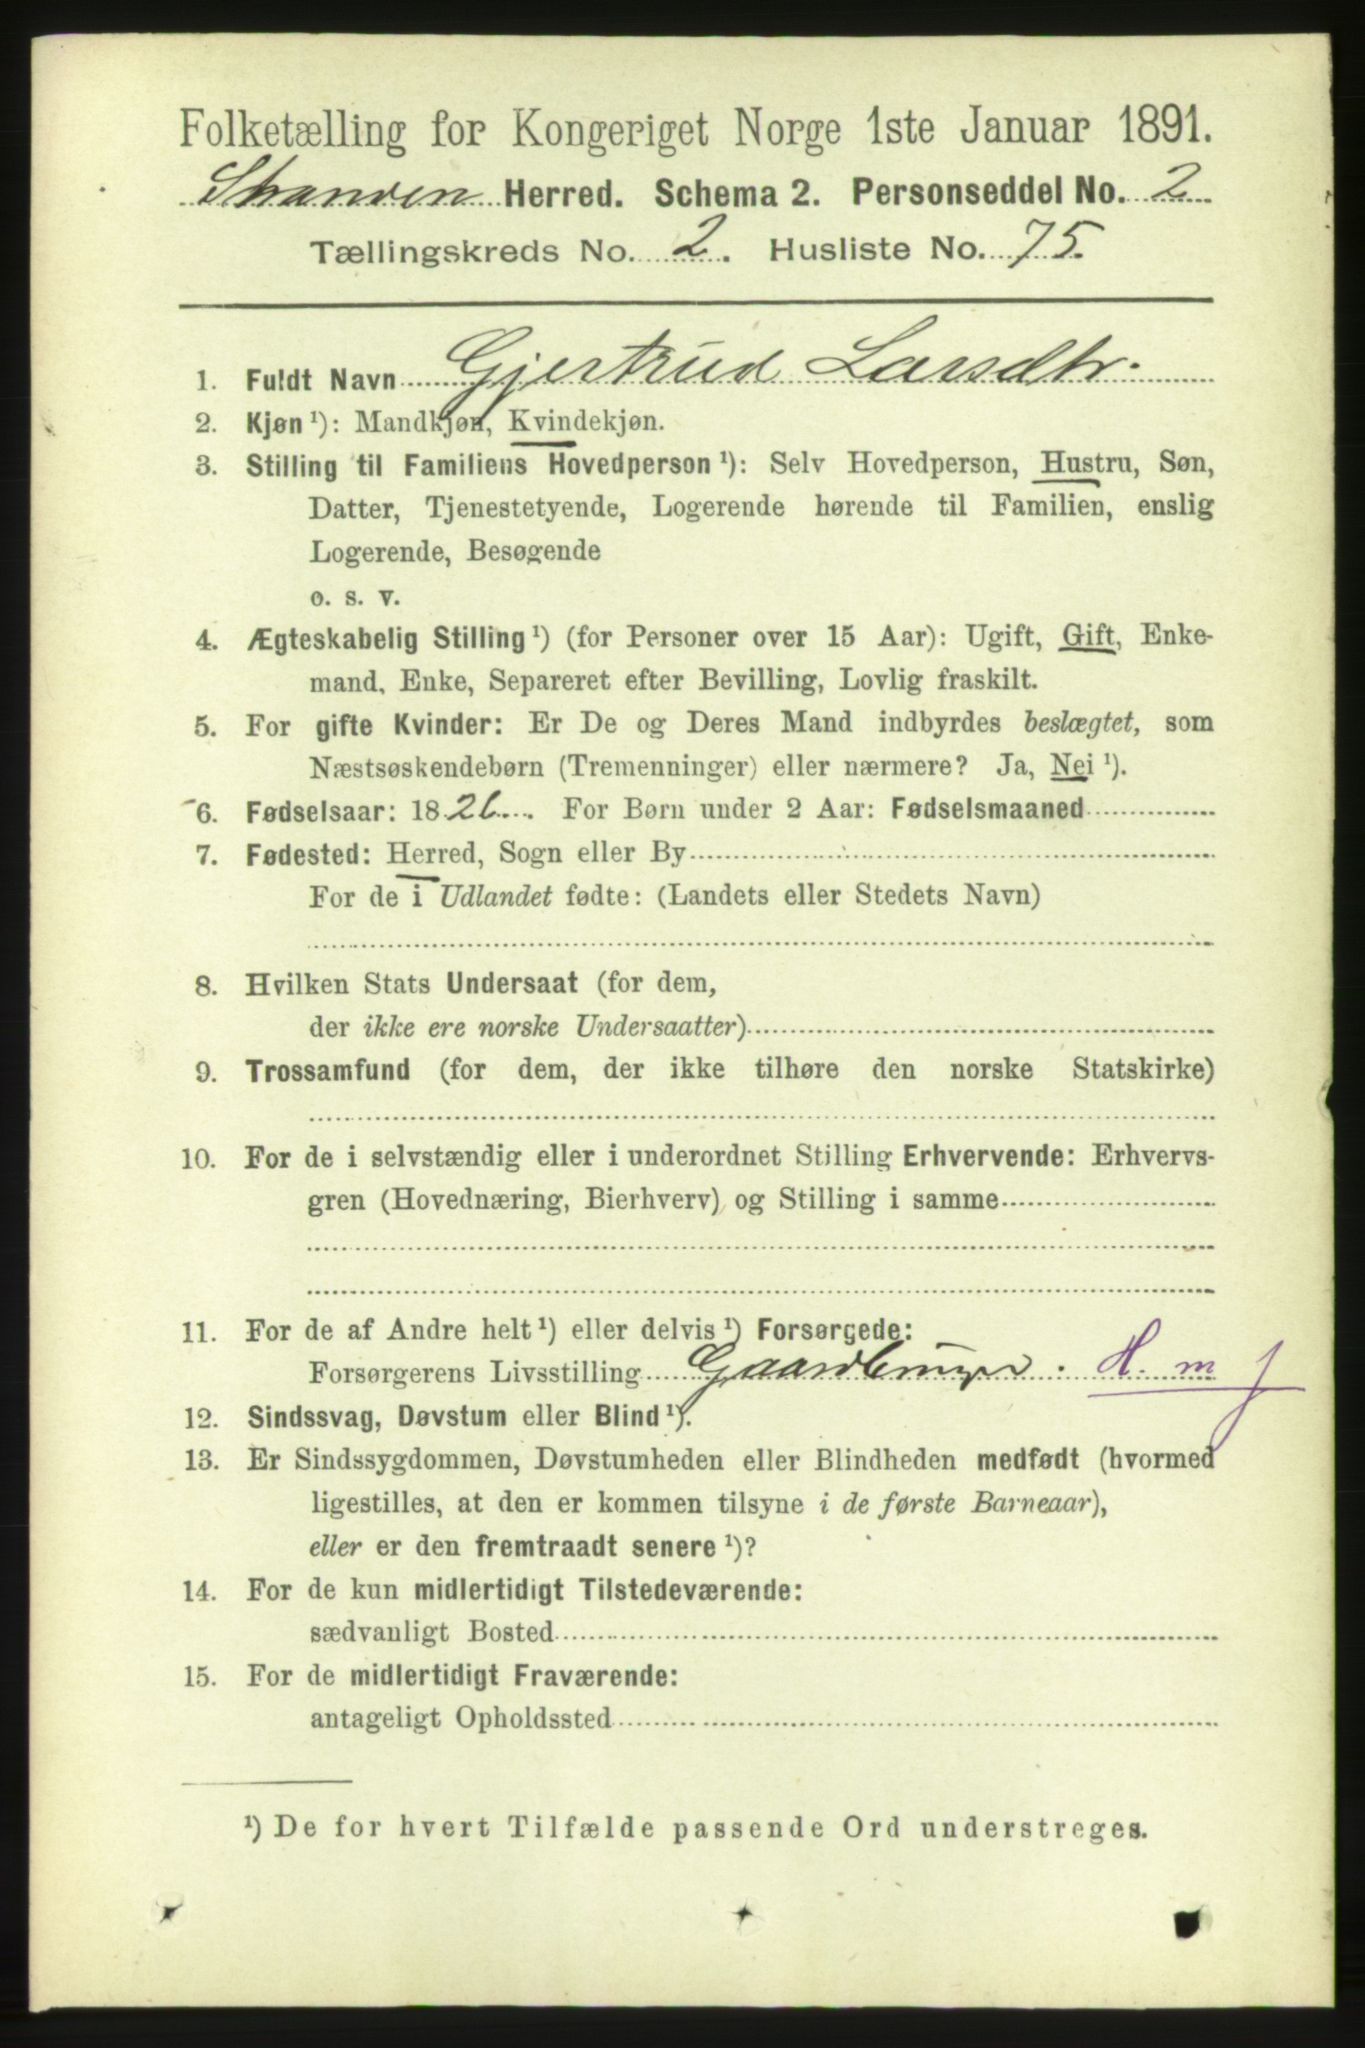 Folketælling for Kongeriget Norge 1ste Januar 1891.
Stranden Herred. Schema 2. Personseddel No. 2
Tællingskreds No. 2. Husliste No. 75.
1. Fuldt Navn Gjertrud Larsdtr.
2. Kjøn ¹): Mandkjøn, Kvindekjøn.
3. Stilling til Familiens Hovedperson ¹): Selv Hovedperson, Hustru, Søn,
Datter, Tjenestetyende, Logerende hørende til Familien, enslig
Logerende, Besøgende
o. s. v.
4. Ægteskabelig Stilling ¹) (for Personer over 15 Aar): Ugift, Gift, Enke-
mand, Enke, Separeret efter Bevilling, Lovlig fraskilt.
5. For gifte Kvinder: Er De og Deres Mand indbyrdes beslægtet, som
Næstsøskendebørn (Tremenninger) eller nærmere? Ja, Nei ¹).
6. Fødselsaar: 1826. For Børn under 2 Aar: Fødselsmaaned
7. Fødested: Herred, Sogn eller By
For de i Udlandet fødte: (Landets eller Stedets Navn)
8. Hvilken Stats Undersaat (for dem,
der ikke ere norske Undersaatter)
9. Trossamfund (for dem, der ikke tilhøre den norske Statskirke)
10. For de i selvstændig eller i underordnet Stilling Erhvervende: Erhvervs-
gren (Hovednæring, Bierhverv) og Stilling i samme
11. For de af Andre helt ¹) eller delvis ¹) Forsørgede:
Forsørgerens Livsstilling Gaardbruger. H. m j
12. Sindssvag, Døvstum eller Blind ¹).
13. Er Sindssygdommen, Døvstumheden eller Blindheden medfødt (hvormed
ligestilles, at den er kommen tilsyne i de første Barneaar),
eller er den fremtraadt senere ¹)?
14. For de kun midlertidigt Tilstedeværende:
sædvanligt Bosted
15. For de midlertidigt Fraværende:
antageligt Opholdssted
¹) De for hvert Tilfælde passende Ord understreges.